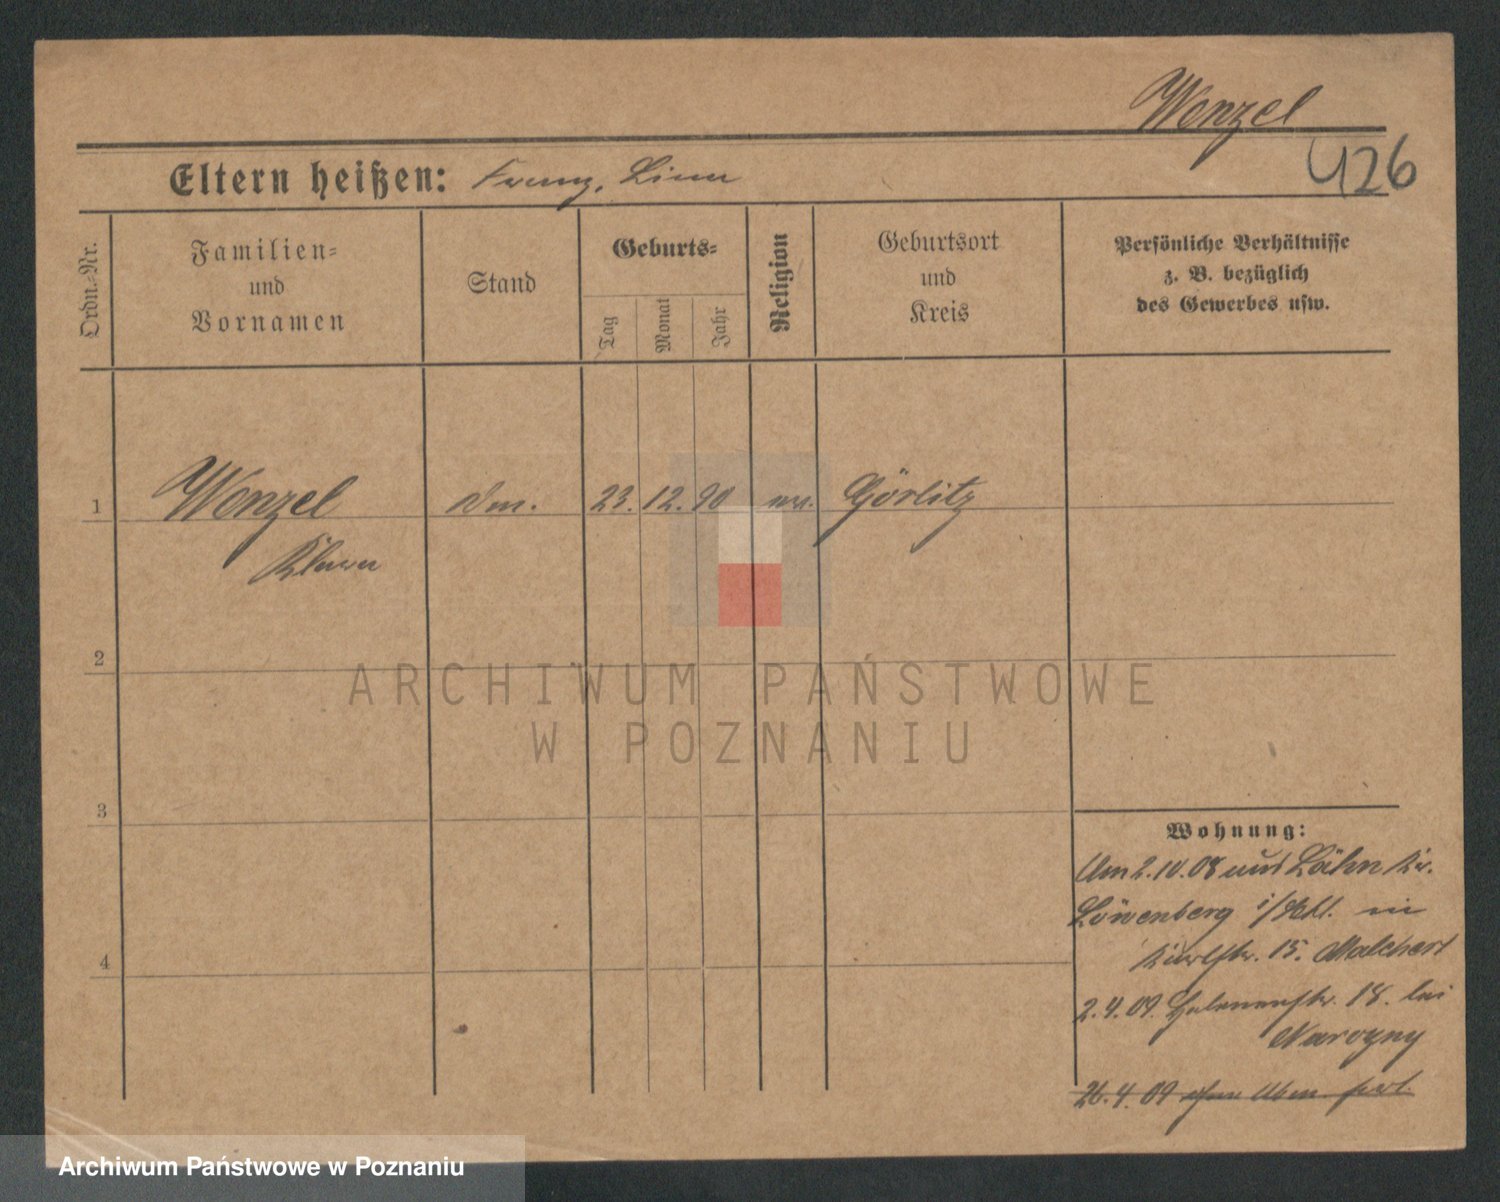 Wenzel
426
Eltern heißen: Franz, Lina
Ordn.-Nr.
Familien-
und
Vornamen
Stand
Geburts-
Tag
Monat
Jahr
Religion
Geburtsort
und
Kreis
Persönliche Verhältnisse
z. B. bezüglich
des Gewerbes usw.
1
Wenzel
23. 12. 90
Görlitz
Klara
2
ARCHIWUM PAŃSTWOWE
W POZNANIU
3
Wohnung:
Am 2.10.08 aus Lähn Kr.
Löwenberg i/Schl. in
15. Malchert
4
2.4.09 Helenenstr. 18. bei
Narozny
26.4.09 ohne Abm. fort.
Archiwum Państwowe w Poznaniu